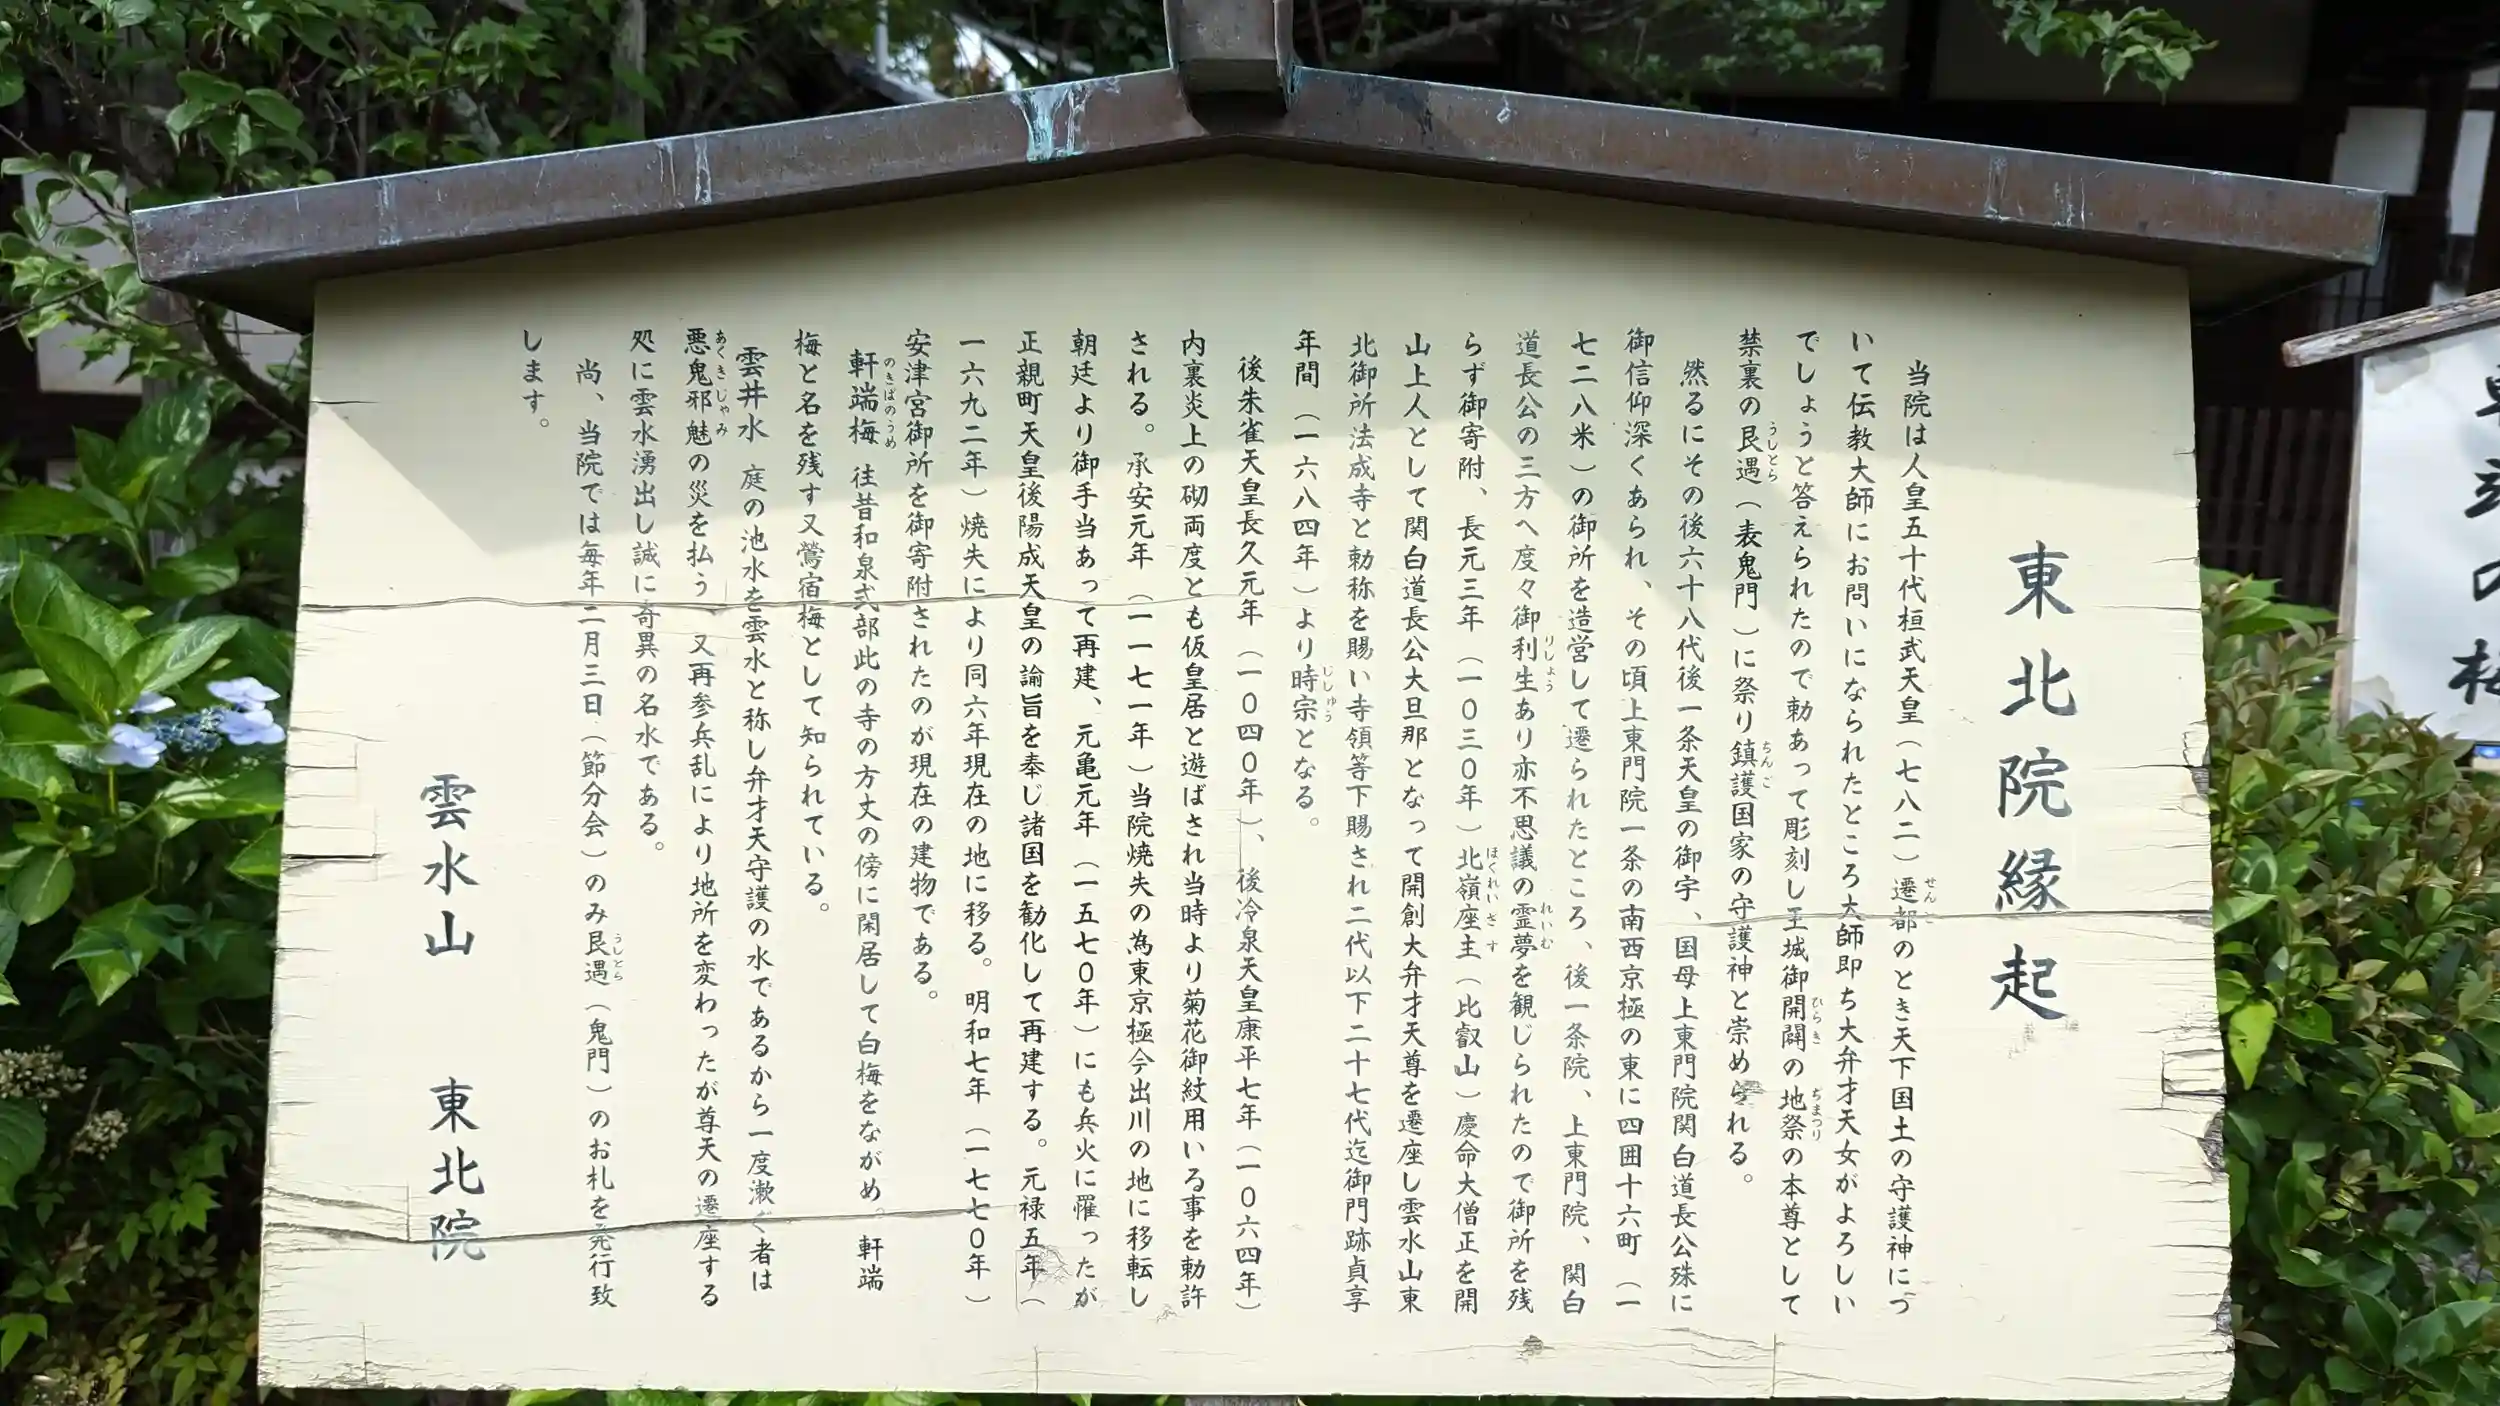 東北院縁起
当院は人皇五十代桓武天皇（七八二）遷都のとき天下国土の守護神につ
いて伝教大師にお問いになられたところ大師即ち大弁才天女がよろしい
でしょうと答えられたので勅あって彫刻し王城御開闢の地祭の本尊として
禁裏の艮遇（表鬼門）に祭り鎮護国家の守護神と崇められる。
然るにその後六十八代後一条天皇の御宇、国母上東門院関白道長公殊に
御信仰深くあられ、その頃上東門院一条の南西京極の東に四囲十六町（一
七二八米）の御所を造営して遷られたところ、後一条院、上東門院、関白
道長公の三方へ度々御利生あり亦不思議の霊夢を観じられたので御所を残
らず御寄附、長元三年（一〇三〇年）北嶺座主（比叡山）慶命大僧正を開
山上人として関白道長公大旦那となって開創大弁才天尊を遷座し雲水山東
北御所法成寺と勅称を賜い寺領等下賜され二代以下二十七代迄御門跡貞享
年間（一六八四年）より時宗となる。
後朱雀天皇長久元年（一〇四〇年）、後冷泉天皇康平七年（一〇六四年）
内裏炎上の砌両度とも仮皇居と遊ばされ当時より菊花御紋用いる事を勅許
される。承安元年（一一七一年）当院焼失の為東京極今出川の地に移転し
朝廷より御手当あって再建、元亀元年（一五七〇年）にも兵火に罹ったが
正親町天皇後陽成天皇の諭旨を奉じ諸国を勧化して再建する。元禄五年（
一六九二年）焼失により同六年現在の地に移る。明和七年（一七七〇年）
安津宮御所を御寄附されたのが現在の建物である。
軒端梅 往昔和泉式部此の寺の方丈の傍に閑居して白梅をながめ。軒端
梅と名を残す又鶯宿梅として知られている。
雲井水 庭の池水を雲水と称し弁才天守護の水であるから一度漱ぐ者は
悪鬼邪魅の災を払う 又再参兵乱により地所を変わったが尊天の遷座する
処に雲水湧出し誠に奇異の名水である。
尚、当院では毎年二月三日（節分会）のみ艮遇（鬼門）のお札を発行致
します。
雲水山 東北院
の梅